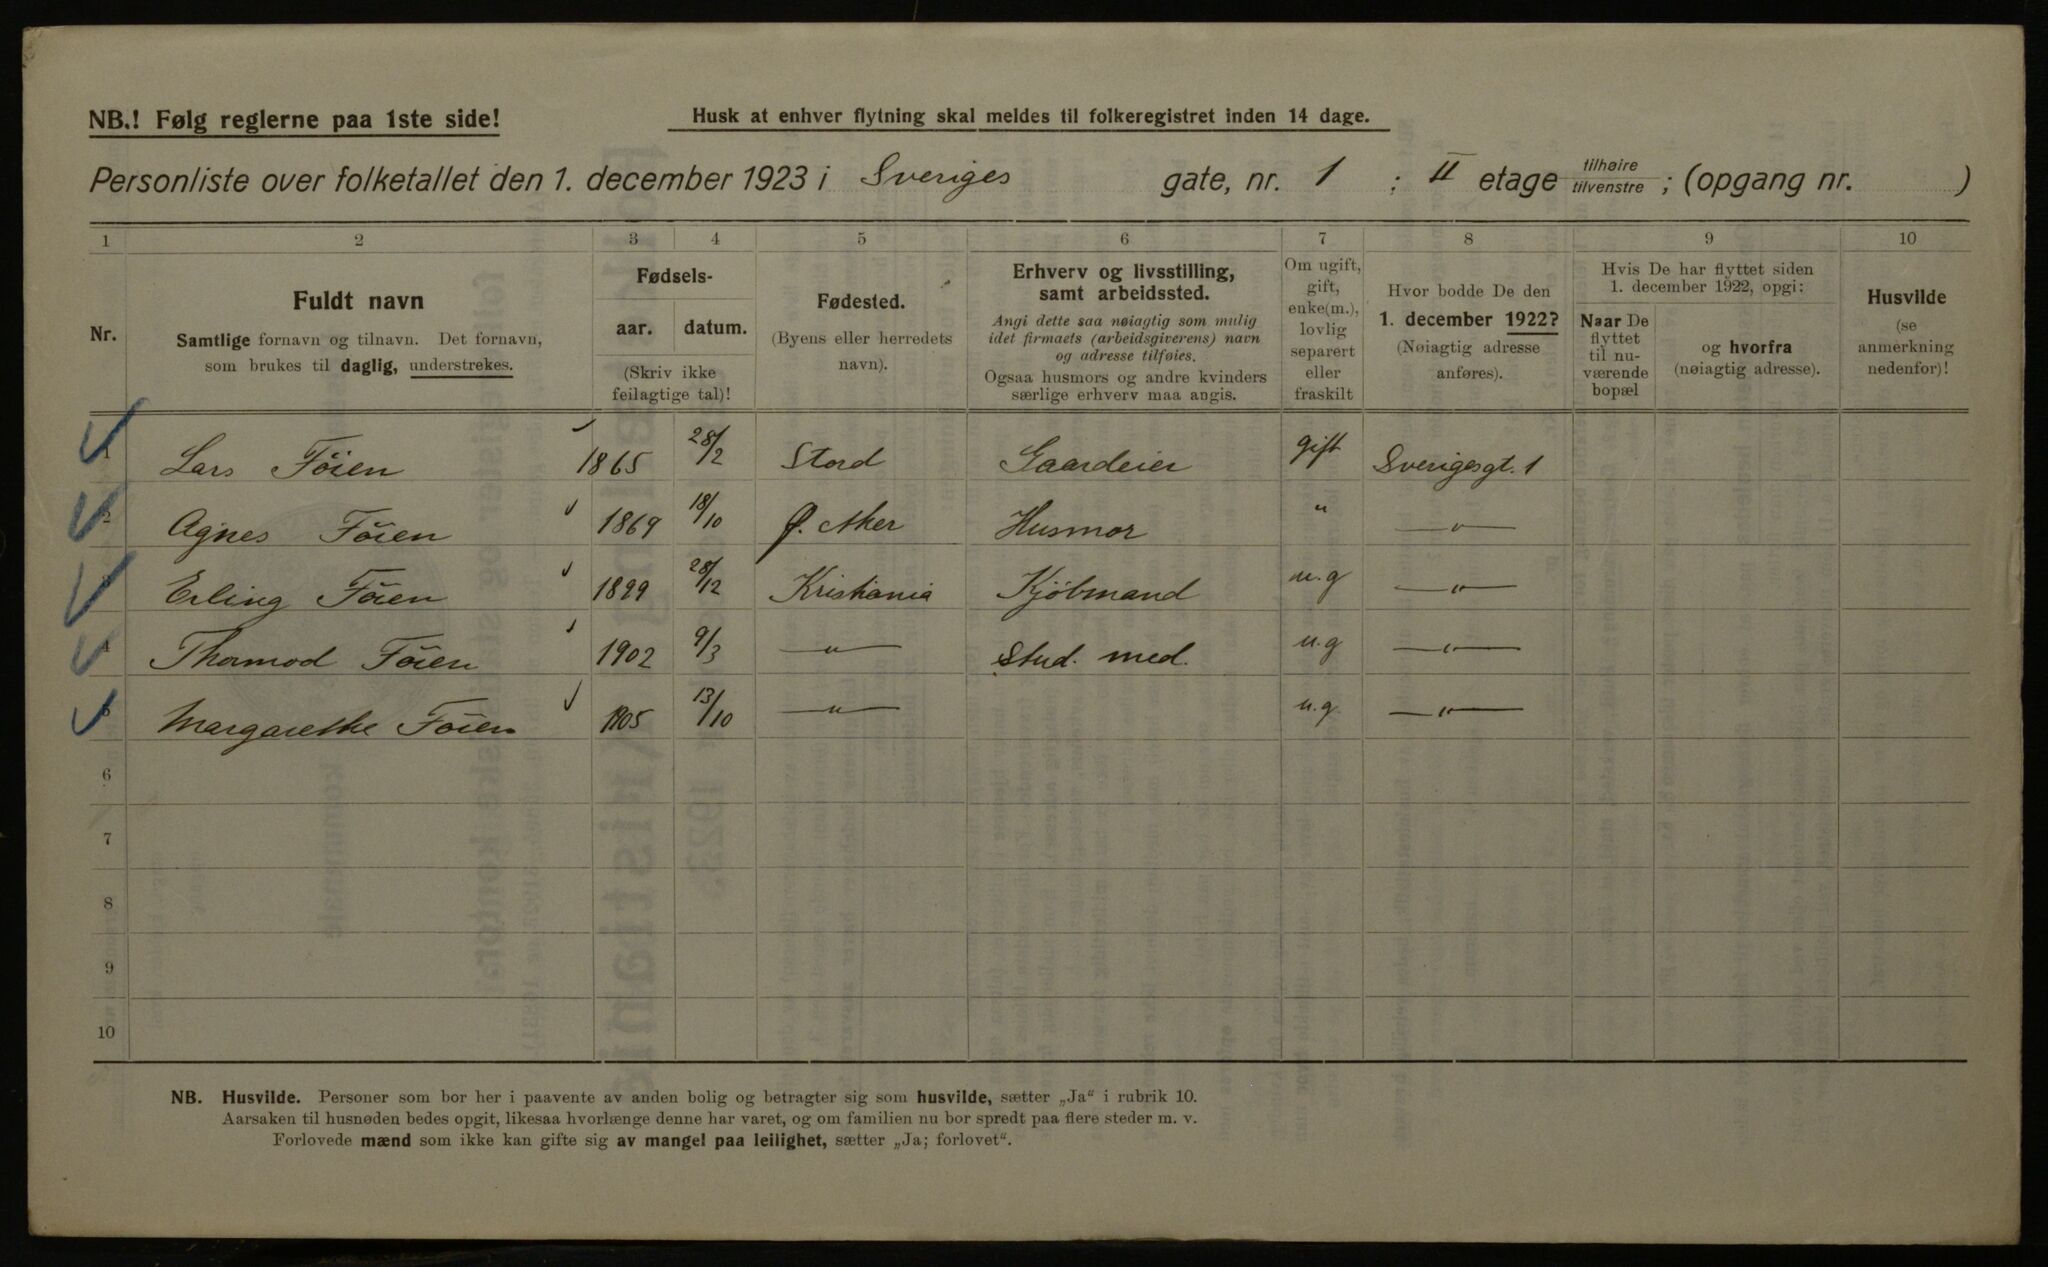 NB.! Følg reglerne paa 1ste side!
Husk at enhver flytning skal meldes til folkeregistret inden 14 dage.
Personliste over folketallet den 1. december 1923 i Sveriges gate, nr. 1 ; II etage tilhøire tilvenstre ; (opgang nr. )
1 2 3 4 5 6 7 8 9 10
Nr.
Fuldt navn
Samtlige fornavn og tilnavn. Det fornavn,
som brukes til daglig, understrekes.
Fødsels-
aar. datum.
(Skriv ikke
feilagtige tal)!
Fødested.
(Byens eller herredets
navn).
Erhverv og livsstilling,
samt arbeidssted.
Angi dette saa nøiagtig som mulig
idet firmaets (arbeidsgiverens) navn
og adresse tilføies.
Ogsaa husmors og andre kvinders
særlige erhverv maa angis.
Om ugift,
gift,
enke(m.),
lovlig
separert
eller
fraskilt
Hvor bodde De den
1. december 1922?
(Nøiagtig adresse
anføres).
Hvis De har flyttet siden
1. december 1922, opgi:
Naar De
flyttet
til nu-
værende
bopæl
og hvorfra
(nøiagtig adresse).
Husvilde
(se
anmerkning
nedenfor)!
1 Lars Föien 1865 28/2 Stord Gaardeier gift Sverigesgt. 1
2 Agnes Föien 1869 18/10 Ø. Aker Husmor " —"—
3 Erling Föien 1899 28/12 Kristiania Kjöbmand u.g —"—
4 Thormod Föien 1902 9/3 —"— Stud. med. u.g —"—
5 Margarethe Föien 1905 13/10 —"— u.g. —"—
6
7
8
9
10
NB. Husvilde. Personer som bor her i paavente av anden bolig og betragter sig som husvilde, sætter „Ja“ i rubrik 10.
Aarsaken til husnøden bedes opgit, likesaa hvorlænge denne har varet, og om familien nu bor spredt paa flere steder m. v.
Forlovede mænd som ikke kan gifte sig av mangel paa leilighet, sætter „Ja; forlovet“.